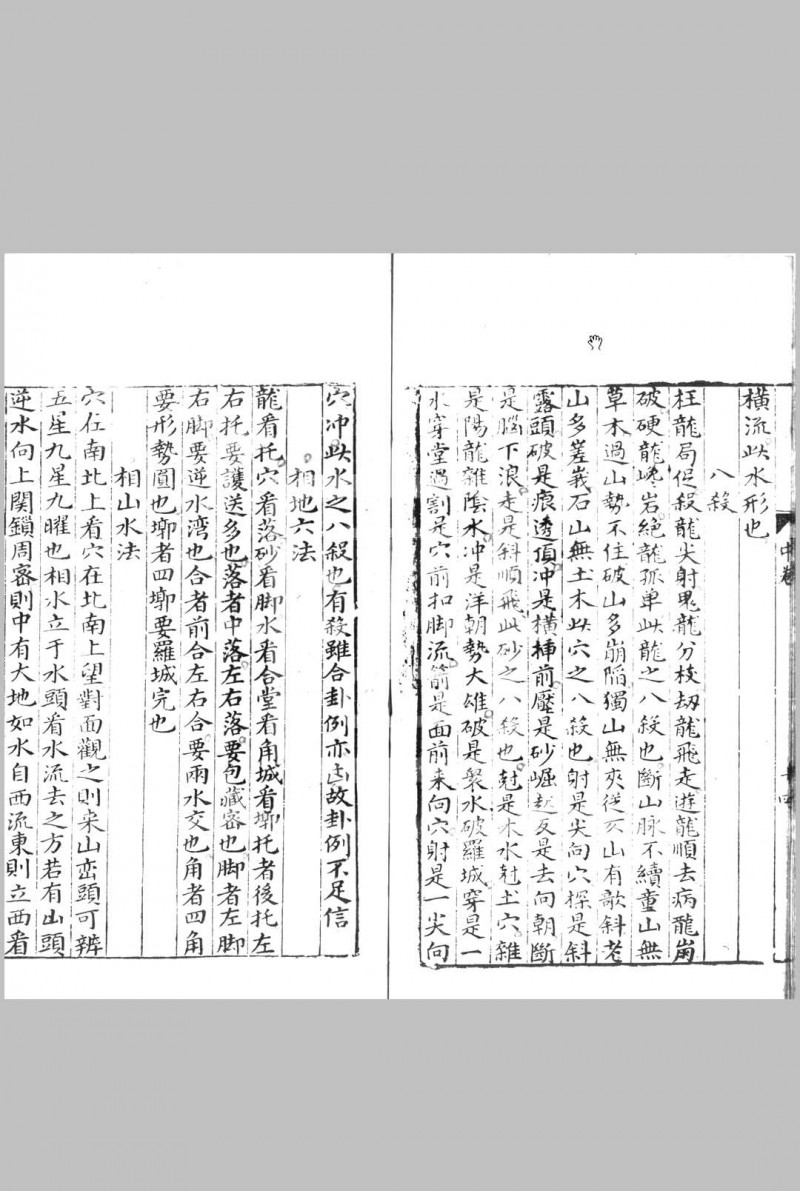 橫流此水形也
八殺
枉龍局促殺龍尖射鬼龍分枝刼龍飛走遊龍順去病龍崩
破硬龍巉岩絕龍孤单此龍之八殺也斷山脉不續童山無
草木過山勢不住破山多崩陷獨山無夾從欠山有欹斜老
山多峩石山無土木此穴之八殺也射是尖向穴探是斜
露頭破是痕透頂冲是橫揷前壓是砂崛起反是去向朝斷
是腦下浪走是斜順飛此砂之八殺也尅是木水尅土穴雜
是陽龍雜陰水冲是洋朝勢大雄破是衆水破羅城穿是一
水穿堂過割是穴前扣脚流箭是面前来向穴射是一尖向
中卷
穴冲此水之八殺也有殺雖合卦例亦凶故卦例不足信
相地六法
龍看托穴看落砂看脚水看合堂看角城看墎托者後托左
右托要護送多也落者中落左右落要包藏密也脚者左脚
右脚要逆水湾也合者前合左右合要兩水交也角者四角
要形勢圓也墎者四墎要羅城完也
相山水法
穴在南北上看穴在北南上望對面觀之則来山峦頭可辨
五星九星九曜也相水立于水頭看水流去之方若有山頭
逆水向上関鎖周密則中有大地如水自西流東則立西看